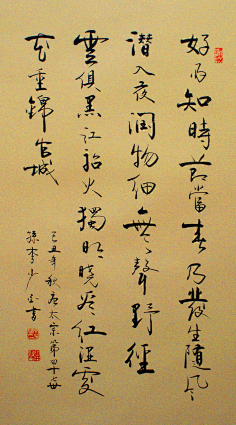 好雨知時節當春乃發生隨風
潛入夜潤物細無聲野徑
雲俱黑江船火獨明曉看紅濕處
花重錦官城
己丑年秋唐太宗第四十
孫李少
書